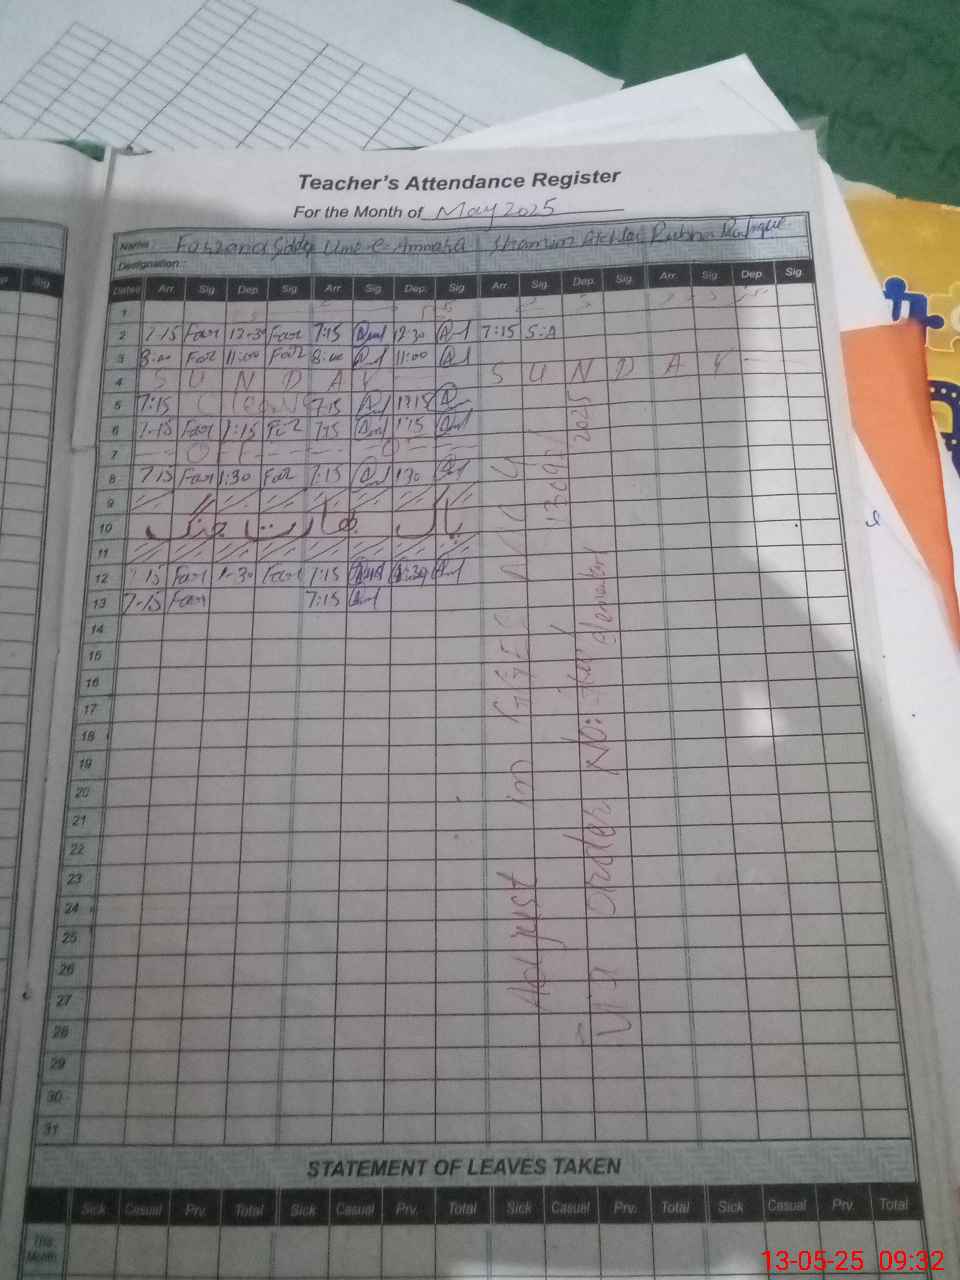 Teacher's Attendance Register
For the Month of May 2025
Name: Farzana Umm-e-Ammara Shamim Akhtar Rubina
Designation:
Dates Arr. Sig. Dep. Sig. Arr. Sig. Dep. Sig. Arr. Sig. Dep. Sig. Arr. Sig. Dep. Sig.
1
2 7-15 Far 12-30 Far 7:15 12:30 7:15 S.A
3 8:00 Far 11:00 Far 8:00 11:00
4 S U N D A Y S U N D A Y
5 7:15 7:15 12:15
6 7-15 Far 1:15 7:15 1:15
7 OFF
8 7:15 Far 1:30 Far 7:15 1:30
9
10 پاک بھارت جنگ
11
12 7-15 Far 1-30 Far 7:15 1:30
13 7-15 Far 7:15
14
15
16
17
18
19
20
21
22
23
24
25
26
27
28
29
30
31
Adjust in GGES
Via Order No: 2025
STATEMENT OF LEAVES TAKEN
Sick Casual Prv. Total Sick Casual Prv. Total Sick Casual Prv. Total Sick Casual Prv. Total
This Month
13-05-25 09:32